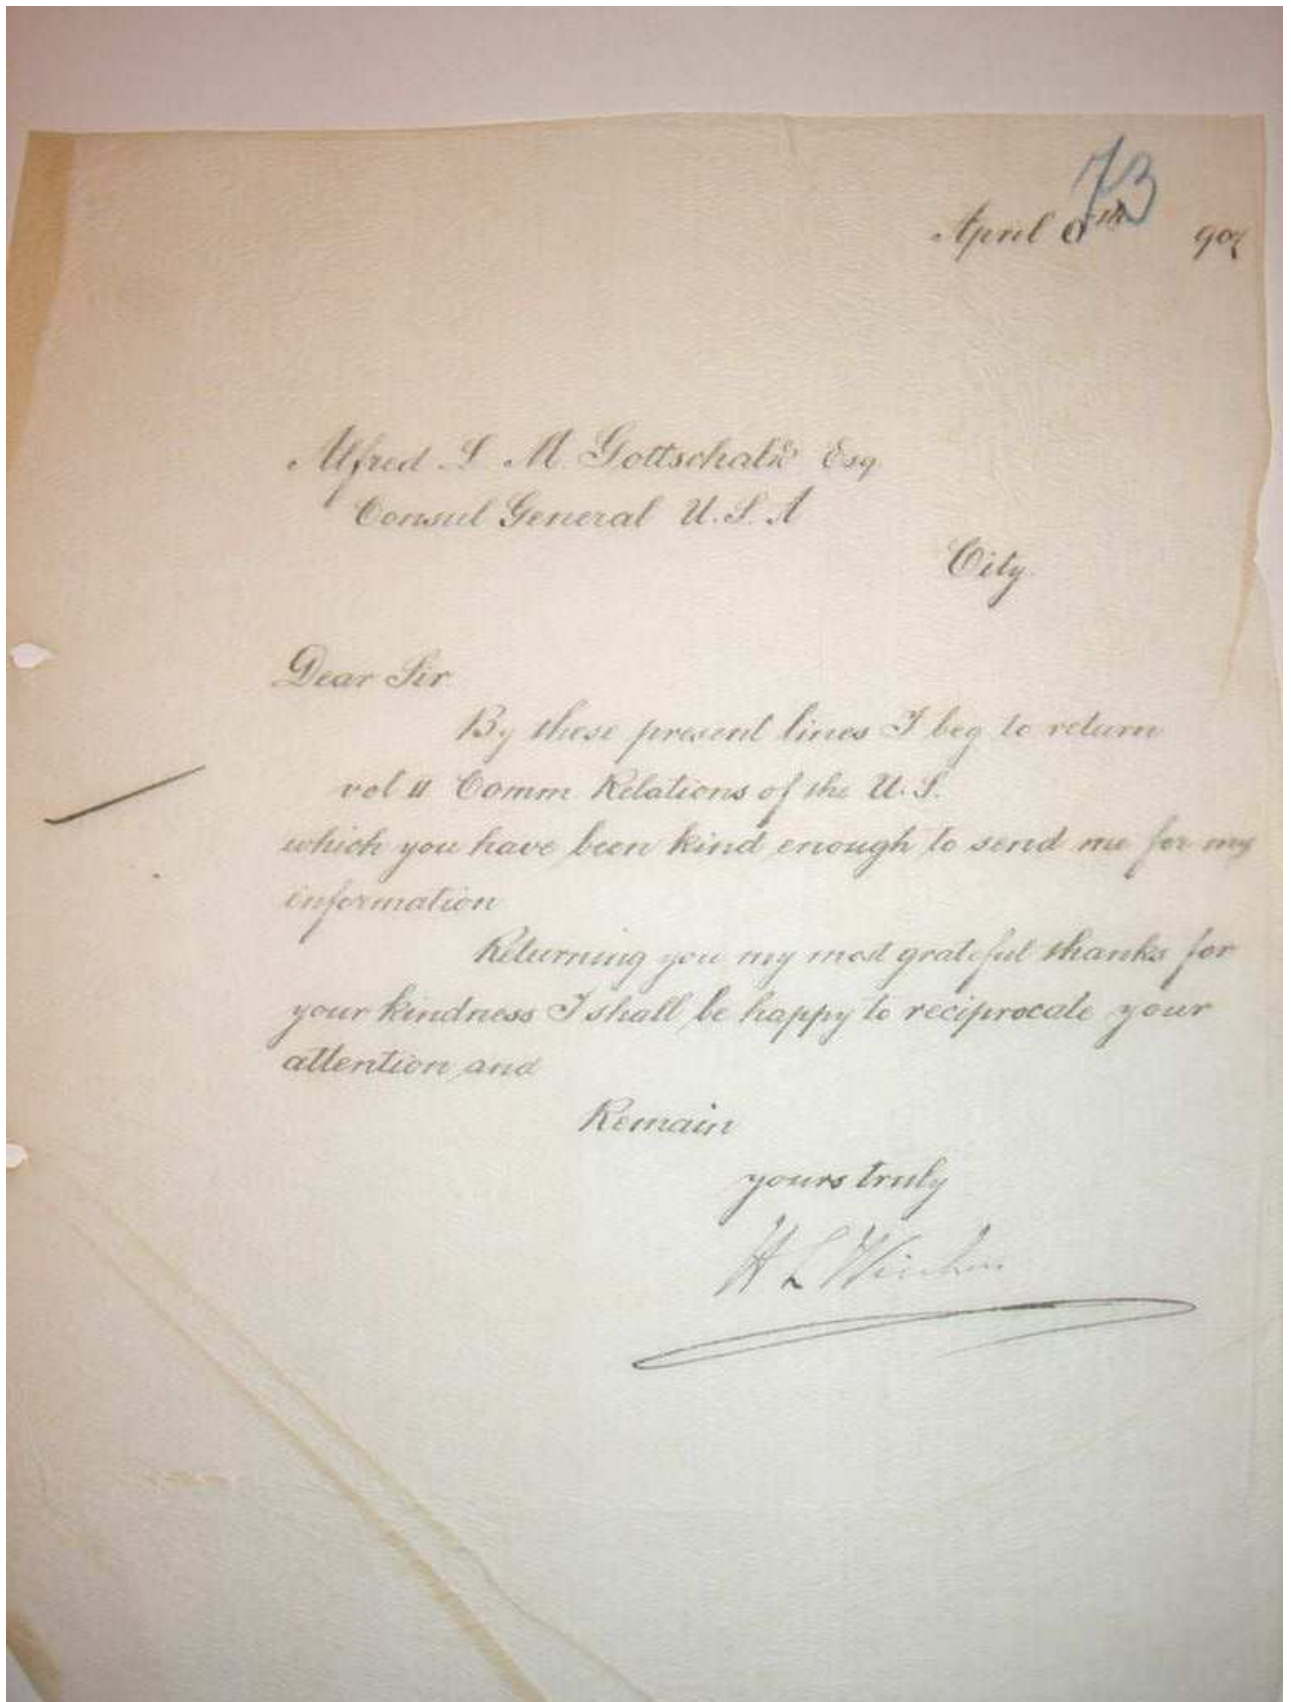 73
April 6th 907
Alfred L M. Gottschalk Esq.
Consul General U.S.A
City.
Dear Sir
By these present lines I beg to return
vol II Comm. Relations of the U.S.
which you have been kind enough to send me for my
information
Returning you my most grateful thanks for
your kindness I shall be happy to reciprocate your
attention and
Remain
yours truly
H L